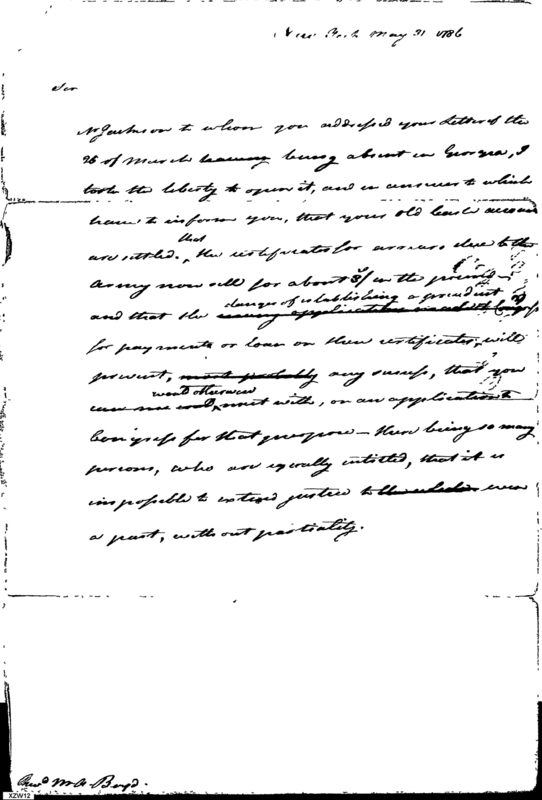 New York May 31 1786
Sir
Mr Jackson to whom you addressed your Letter of the
26 of March having being absent in Georgia, I
took the liberty to open it, and in answer to which
have to inform you, that your old cash accounts
that
are settled. , the certificates for arrears due to the
Army now sell for about 3/ in the pound -
danger of establishing a precedent
and that the many applications made to Congress
for payments or loan on these certificates, will
prevent, most probably any success, that you
would otherwise
meet with, on an application to
Congress for that purpose - there being so many
persons, who are equally entitled, that it is
impossible to extend justice to the whole even
a part, without partiality.
Revd Mr A. Boyd.
XZW12